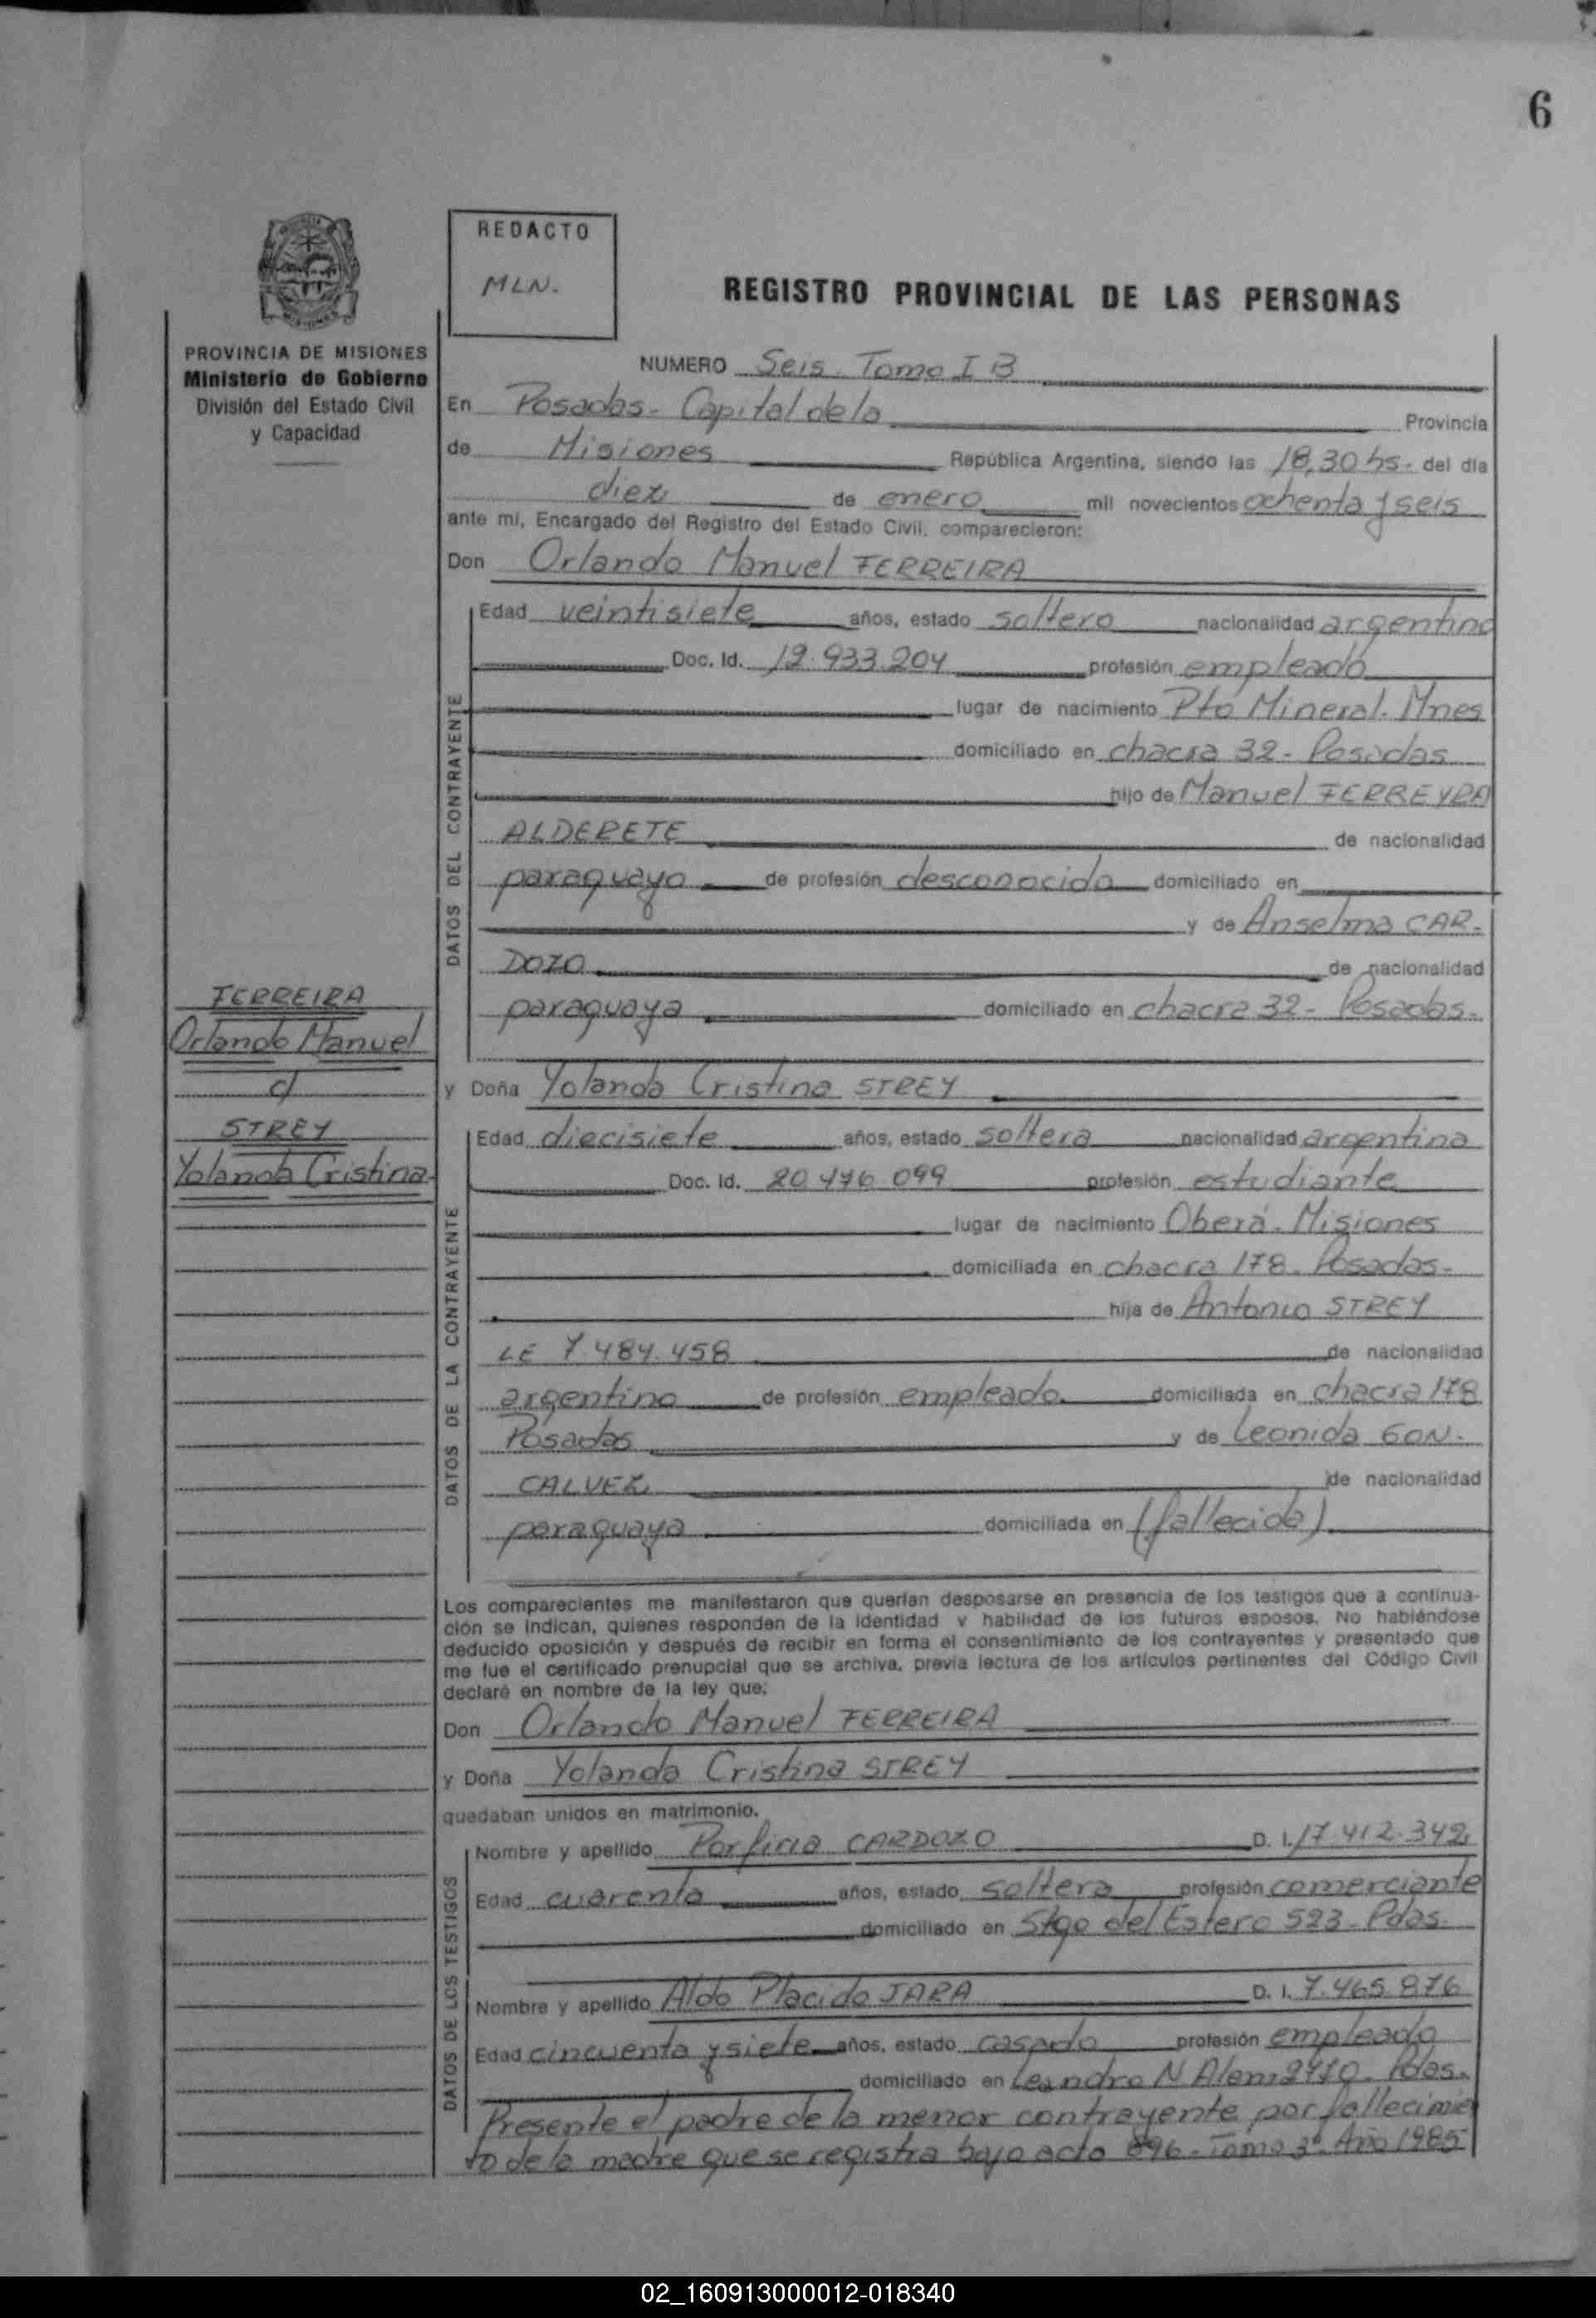 6
REDACTO
MLN.
REGISTRO PROVINCIAL DE LAS PERSONAS
PROVINCIA DE MISIONES
Ministerio de Gobierno
División del Estado Civil
y Capacidad
NUMERO Seis Tomo I B
En Posadas - Capital de la Provincia
de Misiones República Argentina, siendo las 18,30 hs. del día
diez de enero mil novecientos ochenta y seis
ante mí, Encargado del Registro del Estado Civil, comparecieron:
Don Orlando Manuel FERREIRA
DATOS DEL CONTRAYENTE
Edad veintisiete años, estado soltero nacionalidad argentina
Doc. Id. 12.933.204 profesión empleado
lugar de nacimiento Pto Mineral. Mnes
domiciliado en chacra 32 - Posadas
hijo de Manuel FERREYRA
ALDERETE de nacionalidad
paraguayo de profesión desconocida domiciliado en
y de Anselma CAR-
DOZO de nacionalidad
paraguaya domiciliado en chacra 32 - Posadas.
FERREIRA
Orlando Manuel
c/
STREY
Yolanda Cristina
y Doña Yolanda Cristina STREY
DATOS DE LA CONTRAYENTE
Edad diecisiete años, estado soltera nacionalidad argentina
Doc. Id. 20.476.099 profesión estudiante
lugar de nacimiento Oberá - Misiones
domiciliada en chacra 178. Posadas-
hija de Antonio STREY
LE 7.484.458 de nacionalidad
argentina de profesión empleado. domiciliada en chacra 178
Posadas y de Leonida GON-
CALVEZ de nacionalidad
paraguaya domiciliada en (fallecida)
Los comparecientes me manifestaron que querían desposarse en presencia de los testigos que a continua-
ción se indican, quienes responden de la identidad y habilidad de los futuros esposos. No habiéndose
deducido oposición y después de recibir en forma el consentimiento de los contrayentes y presentado que
me fue el certificado prenupcial que se archiva, previa lectura de los artículos pertinentes del Código Civil
declaré en nombre de la ley que:
Don Orlando Manuel FERREIRA
y Doña Yolanda Cristina STREY
quedaban unidos en matrimonio.
DATOS DE LOS TESTIGOS
Nombre y apellido Porfiria CARDOZO D. I. 17.412.342
Edad cuarenta años, estado soltera profesión comerciante
domiciliado en Stgo del Estero 523 - Pdas.
Nombre y apellido Aldo Placido JARA D. I. 7.465.876
Edad cincuenta y siete años, estado casado profesión empleado
domiciliado en Leandro N Alem 2410. Pdas.
Presente el padre de la menor contrayente por fallecimien
to de la madre que se registra bajo acta 896 - Tomo 3º Año 1985
02_160913000012-018340